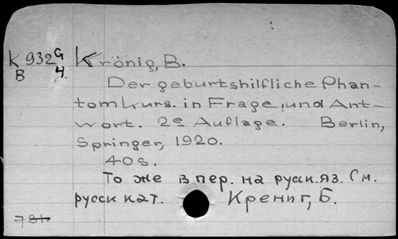 К 932 G Krönig, B.
B 4.
Der geburtshilfliche Phan-
tomkurs. in Frage und Ant-
wort. 2e Auflage. Berlin,
Springer, 1920.
40 s.
То же в пер. на русск.яз. См.
русск кат. Крениг, Б.